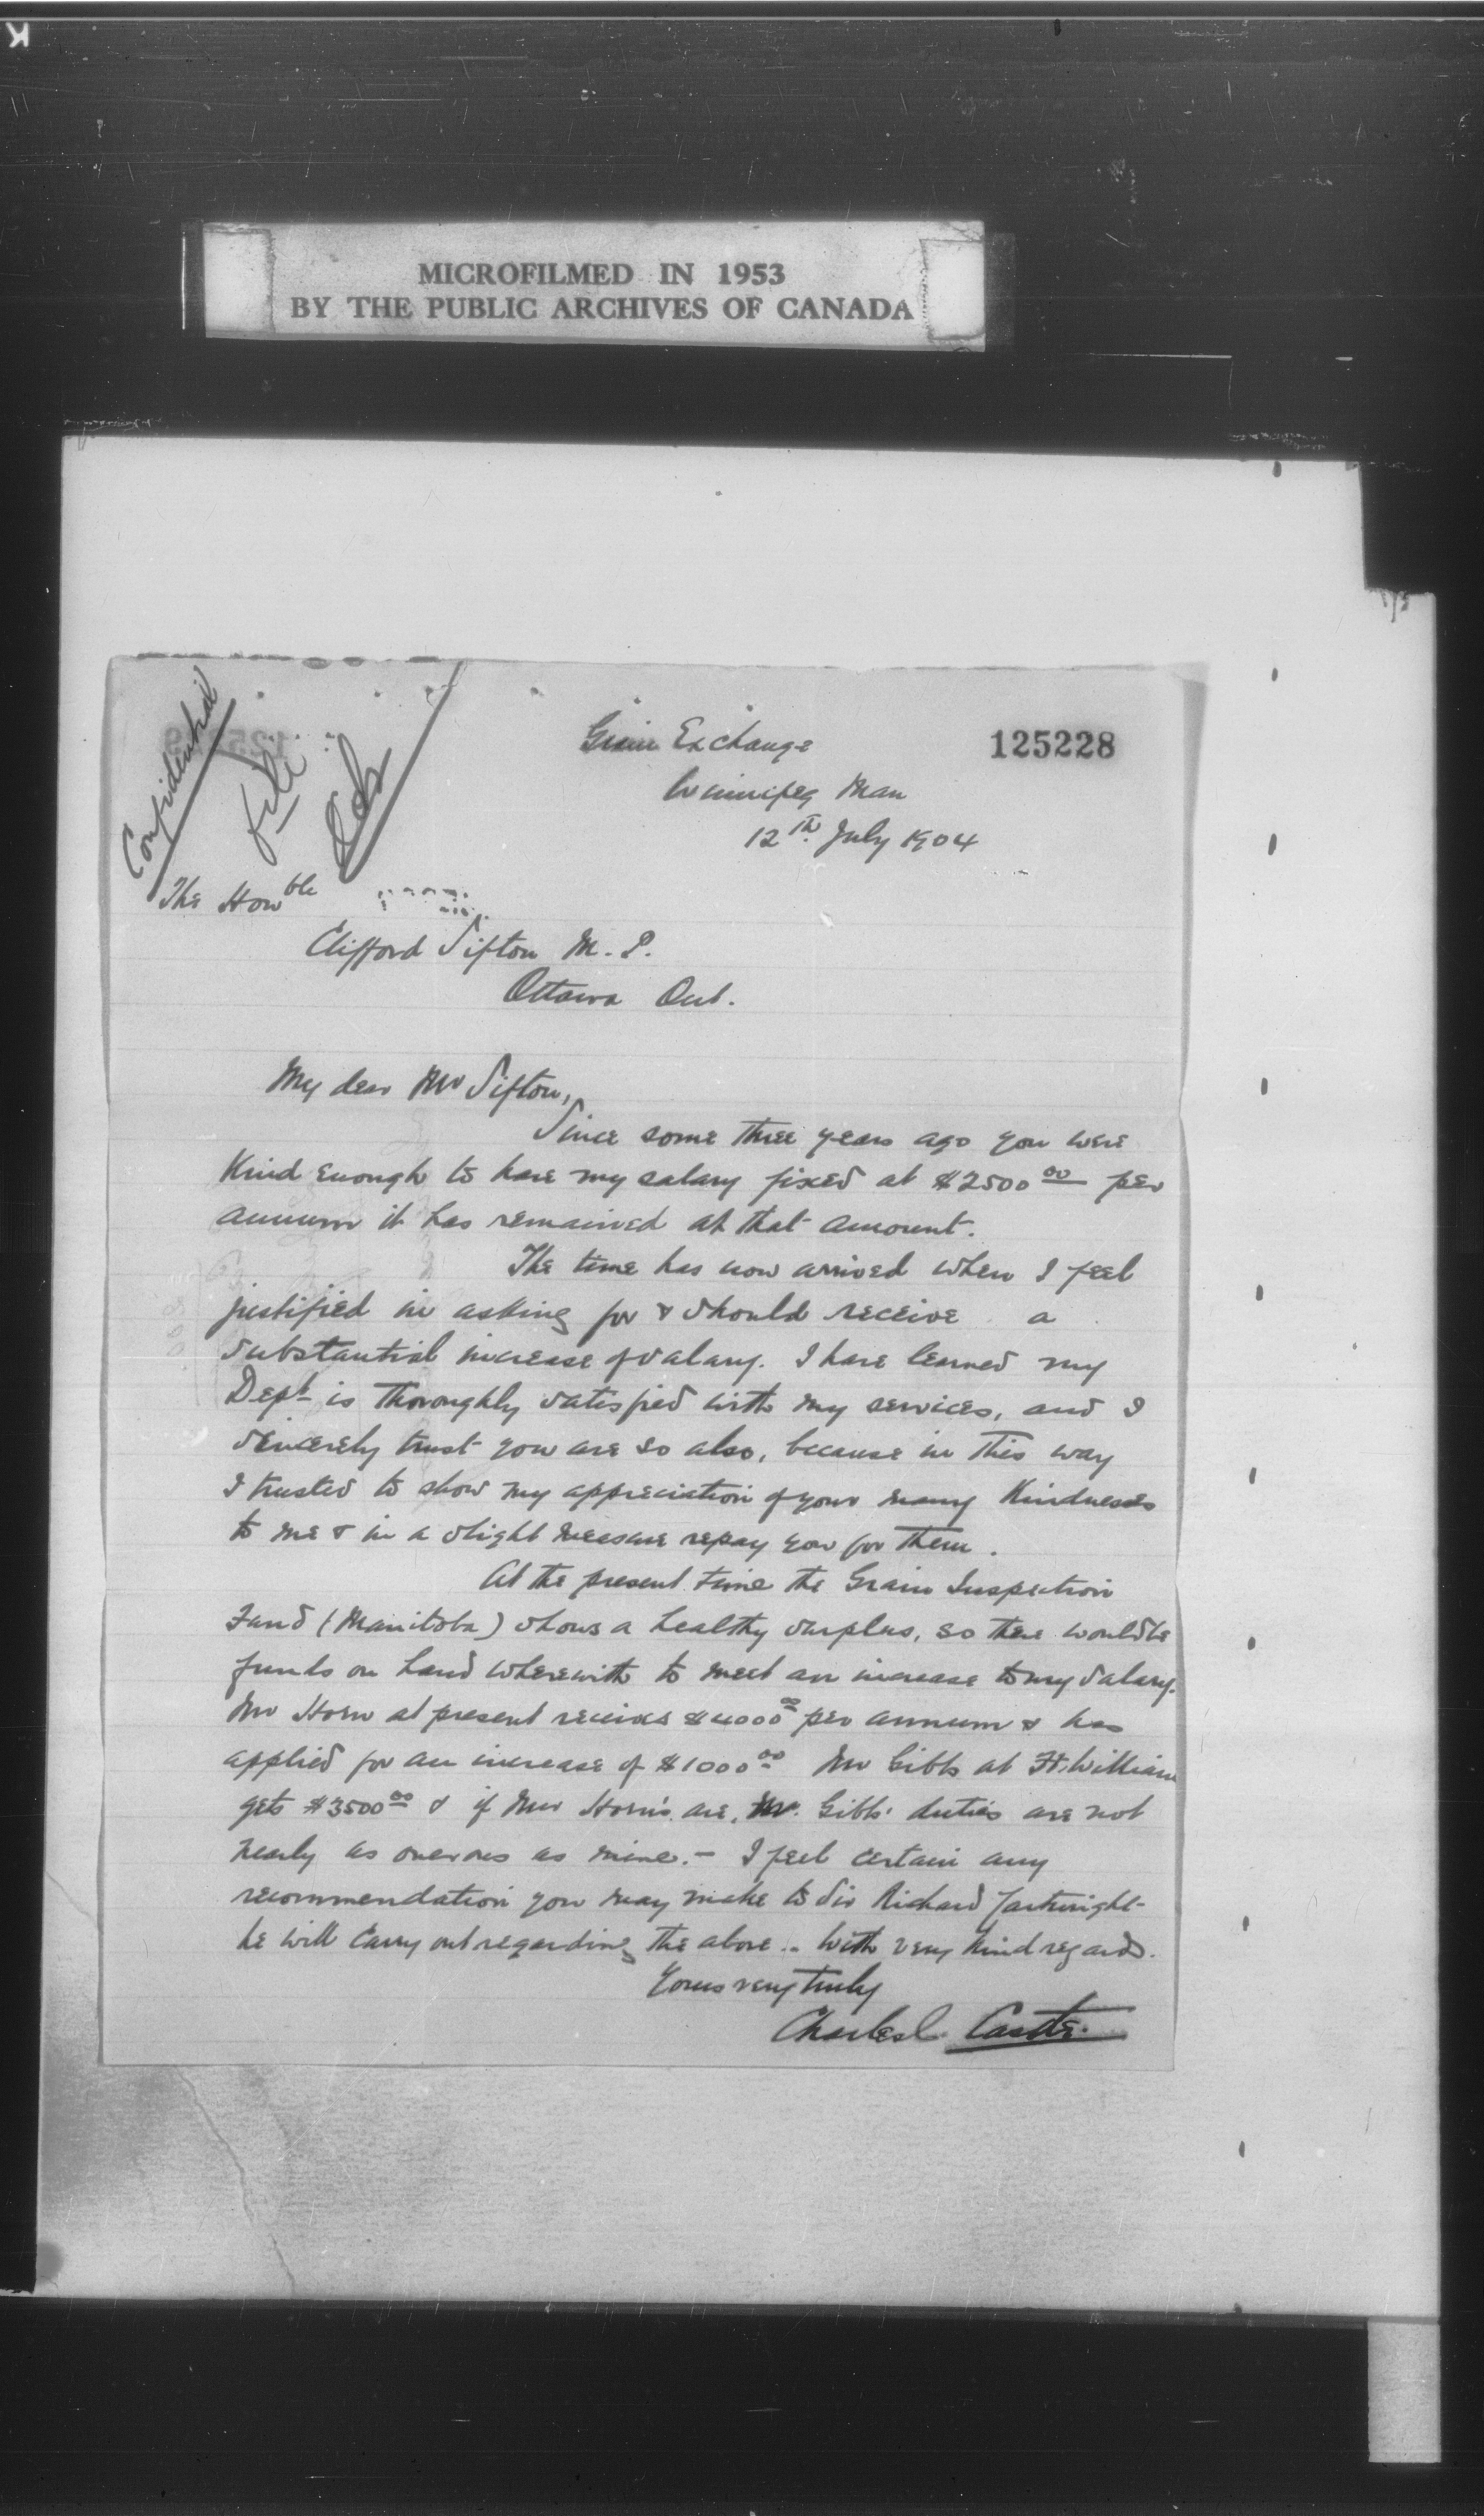 K
MICROFILMED IN 1953
BY THE PUBLIC ARCHIVES OF CANADA
125228
Confidential
file
Grain Exchange
Winnipeg Man
12th July 1904
The Honble
Clifford Sifton M.P.
Ottawa Ont.
My dear Mr Sifton,
Since some three years ago you were
Kind enough to have my salary fixed at $2500 00 per
annum it has remained at that amount.
The time has now arrived when I feel
justified in asking for & should receive a
substantial increase of salary. I have learned my
Dept is thoroughly satisfied with my services, and I
sincerely trust you are so also, because in this way
I trusted to show my appreciation of your many Kindnesses
to me & in a slight measure repay you for them.
At the present time the Grain Inspection
Fund (Manitoba) shows a healthy surplus, so there would be
funds on hand wherewith to meet an increase to my salary.
Mr Horn at present receives $4000 00 per annum & has
applied for an increase of $1000 00 Mr Gibbs at Ft. William
gets $3500 00 & if Mr Horn's are, Mr. Gibbs' duties are not
nearly as onerous as mine. - I feel certain any
recommendation you may make to Sir Richard Cartwright
he will carry out regarding the above .. With very kind regards.
Yours very truly
Charles C. Castle.